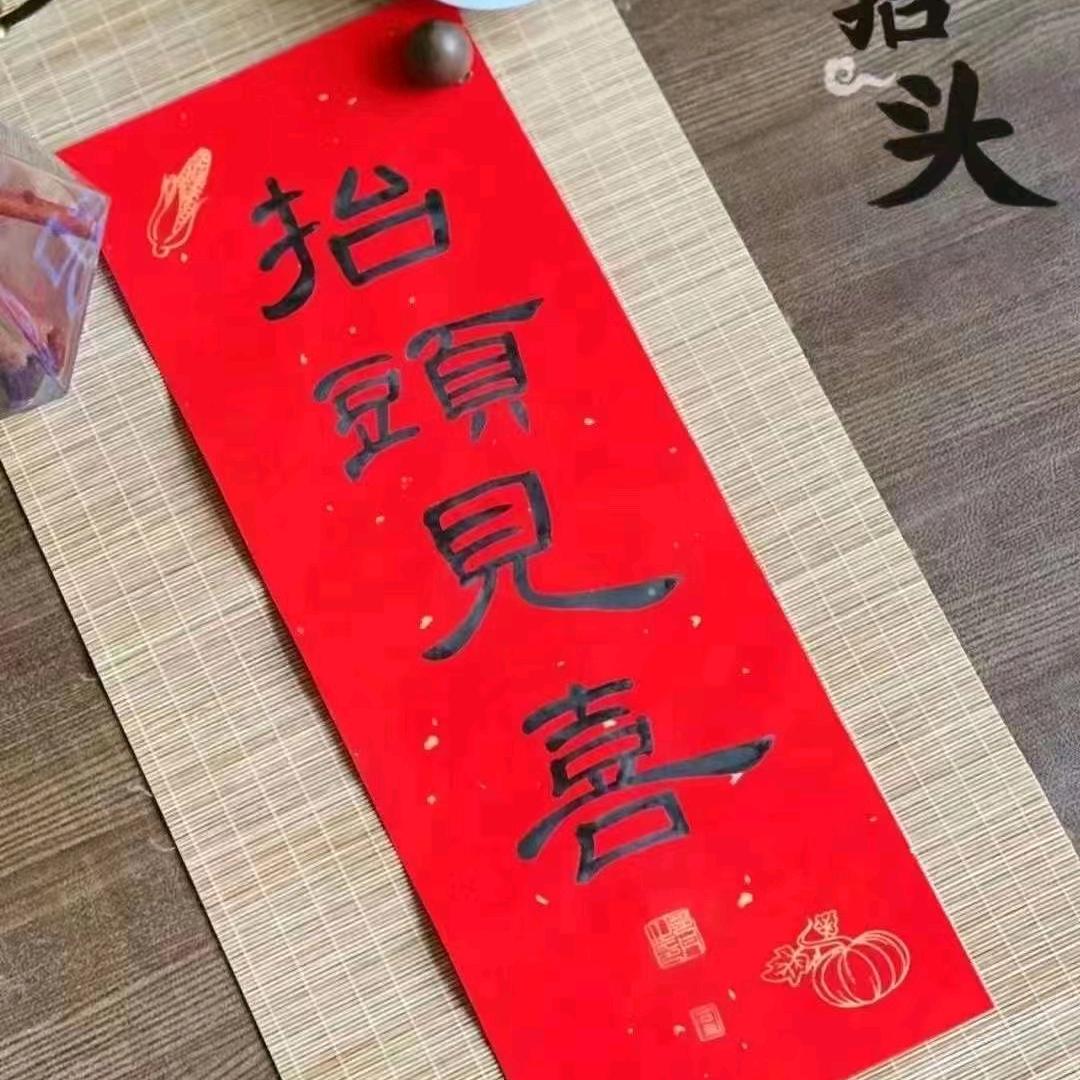 抬頭見喜
抬头